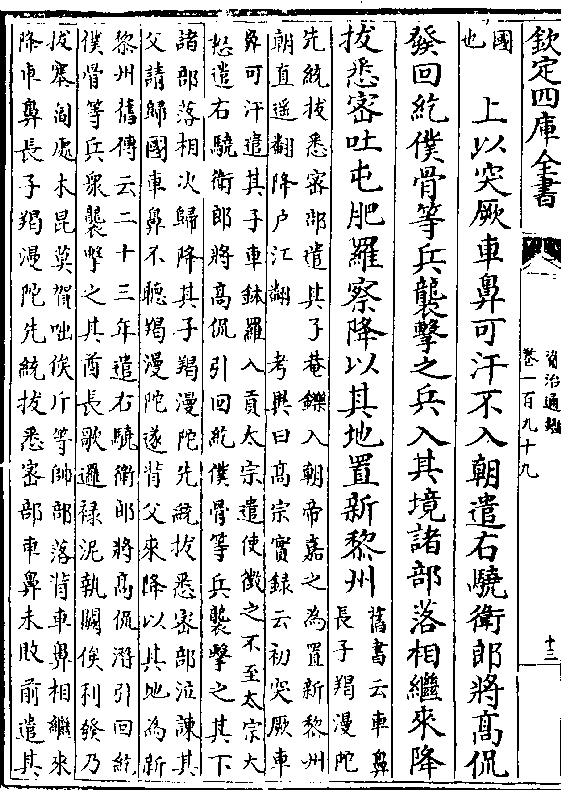 欽定四庫全書
資治通鑑
卷一百九十九
十三
國
也
上以突厥車鼻可汗不入朝遣右驍衛郎將髙侃
發回紇僕骨等兵襲擊之兵入其境諸部落相繼來降
拔悉密吐屯肥羅察降以其地置新黎州
舊書云車鼻
長子羯漫陀
先統拔悉密部遣其子菴鑠入朝帝嘉之為置新黎州
朝直遥翻降户江翻 考異曰髙宗實録云初突厥車
鼻可汗遣其子車鉢羅入貢太宗遣使徵之不至太宗大
怒遣右驍衛郎將髙侃引回紇僕骨等兵襲擊之其下
諸部落相次歸降其子羯漫陀先統拔悉密部泣諫其
父請歸國車鼻不聽羯漫陀遂背父來降以其地為新
黎州舊傳云二十三年遣右驍衛郎將髙侃潛引回紇
僕骨等兵衆襲擊之其酋長歌邏禄泥執闕俟利發乃
拔塞匐處木昆莫賀咄俟斤等帥部落背車鼻相繼來
降車鼻長子羯漫陀先統拔悉密部車鼻未敗前遣其